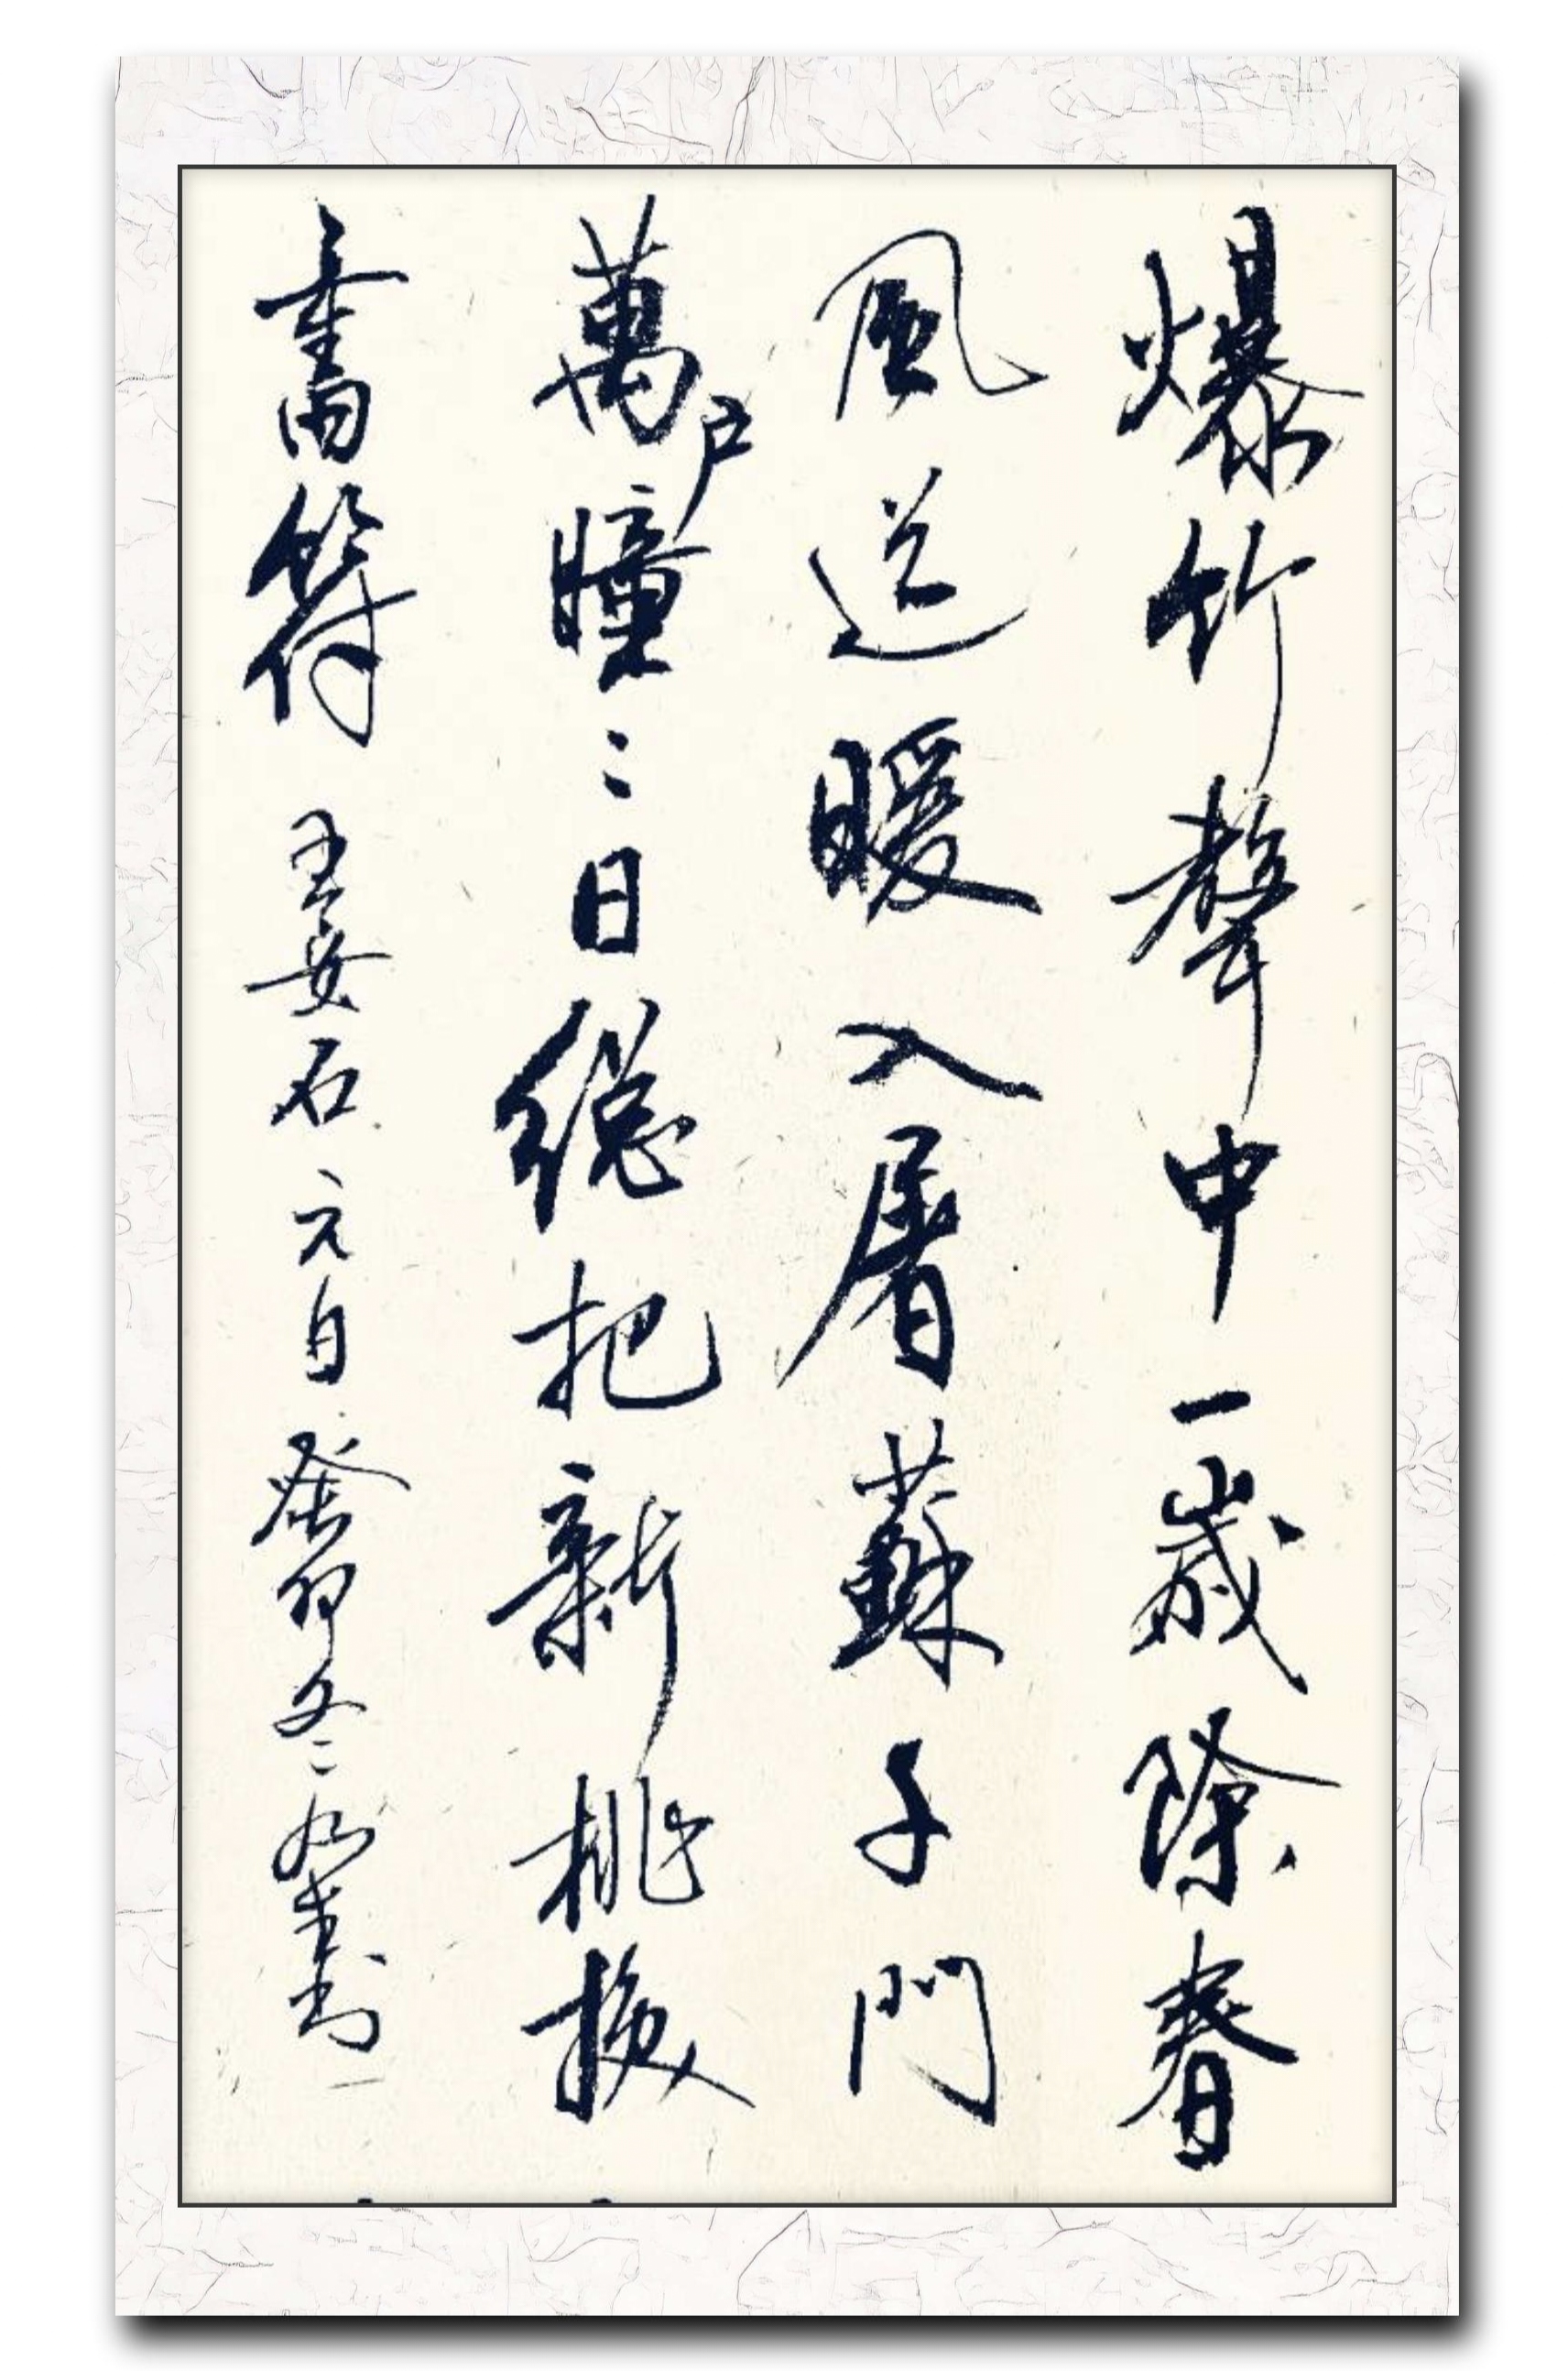 爆竹聲中一歲除春
風送暖入屠蘇千門
萬戶曈々日總把新桃換
舊符 王安石 元日 癸卯冬 書